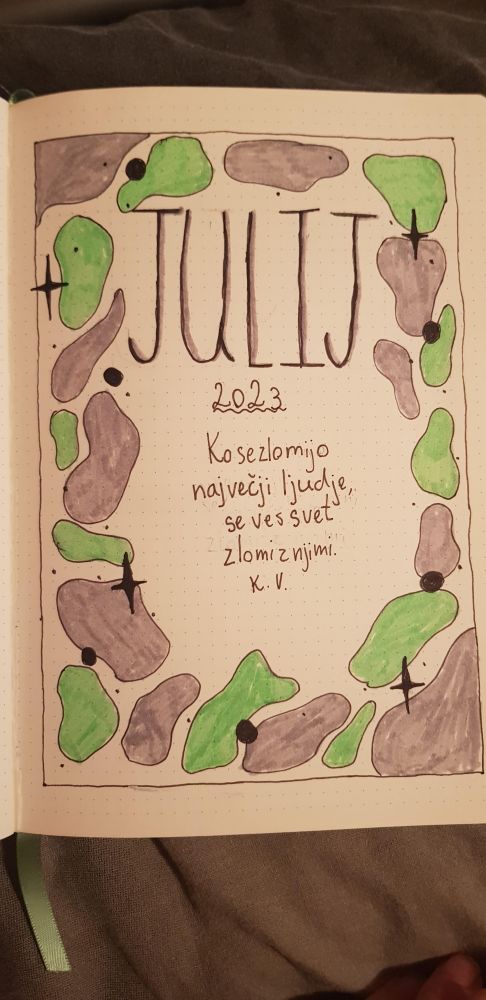 JULIJ
2023
Ko se zlomijo
največji ljudje,
se ves svet
zlomi z njimi.
K. V.